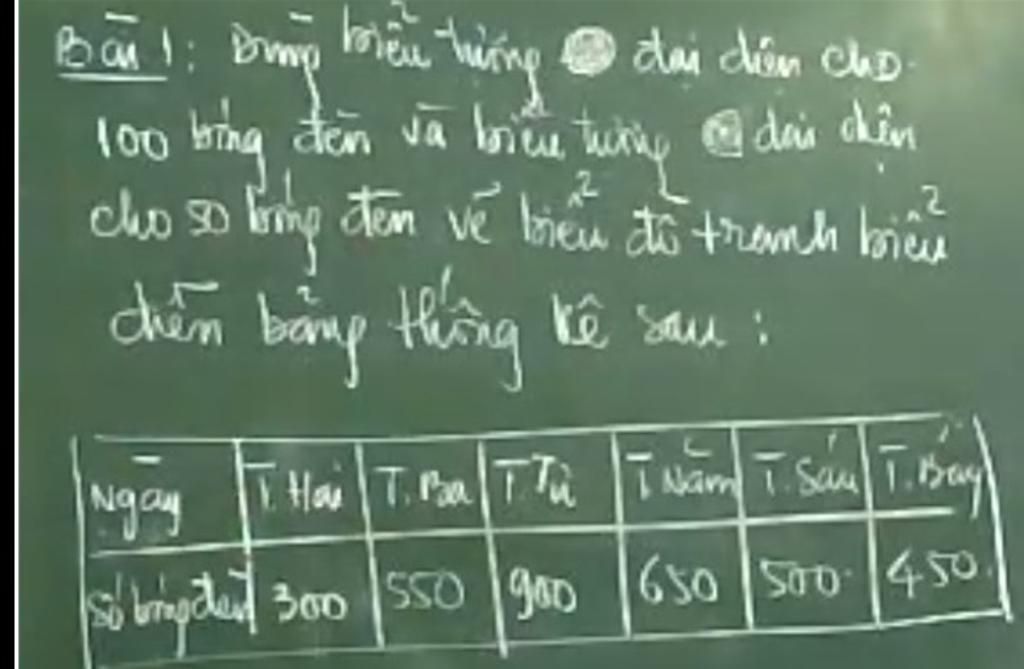 Bài 1: Dùng biểu tượng đại diện cho
100 bóng đèn và biểu tượng đại diện
cho 50 bóng đèn vẽ biểu đồ tranh biểu
diễn bảng thống kê sau:
Ngày T. Hai T. Ba T. Tư T. Năm T. Sáu T. Bảy
Số bóng đèn 300 550 900 650 500 450